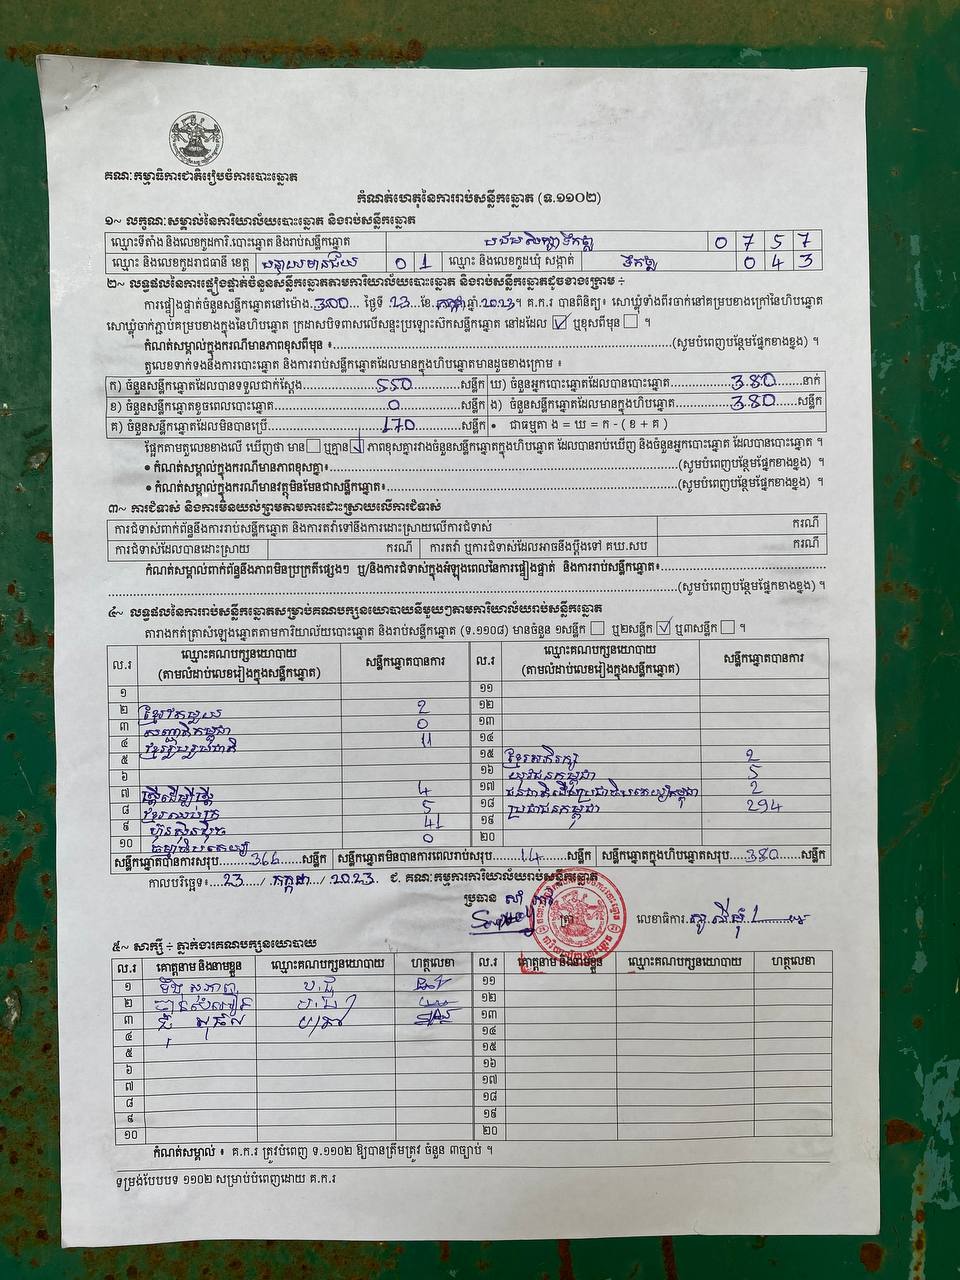 គណៈកម្មាធិការជាតិរៀបចំការបោះឆ្នោត
កំណត់ហេតុនៃការរាប់សន្លឹកឆ្នោត (ទ.១១០២)
១~ លក្ខណៈសម្គាល់នៃការិយាល័យបោះឆ្នោត និងរាប់សន្លឹកឆ្នោត
ឈ្មោះទីតាំង និងលេខកូដការិ.បោះឆ្នោត និងរាប់សន្លឹកឆ្នោត 0 7 5 7
ឈ្មោះ និងលេខកូដរាជធានី ខេត្ត បន្ទាយមានជ័យ 0 1 ឈ្មោះ និងលេខកូដឃុំ សង្កាត់ ទឹកថ្លា 0 4 3
២~ លទ្ធផលនៃការផ្ទៀងផ្ទាត់ចំនួនសន្លឹកឆ្នោតតាមការិយាល័យបោះឆ្នោត និងរាប់សន្លឹកឆ្នោតដូចខាងក្រោម ÷
ការផ្ទៀងផ្ទាត់ចំនួនសន្លឹកឆ្នោតនៅម៉ោង.3:00... ថ្ងៃទី 23 ខែ.កក្កដា ឆ្នាំ.2023។ គ.ក.រ បានពិនិត្យ៖ សោឃ្លុំទាំងពីរចាក់នៅគម្របខាងក្រៅនៃហិបឆ្នោត
សោឃ្លុំចាក់ភ្ជាប់គម្របខាងក្នុងនៃហិបឆ្នោត ក្រដាសបិទពាសលើសន្ទះប្រឡោះស៊កសន្លឹកឆ្នោត នៅដដែល ☑ ឬខុសពីមុន ☐ ។
កំណត់សម្គាល់ក្នុងករណីមានភាពខុសពីមុន ៖ (សូមបំពេញបន្ថែមផ្នែកខាងខ្នង) ។
តួលេខទាក់ទងនឹងការបោះឆ្នោត និងការរាប់សន្លឹកឆ្នោតដែលមានក្នុងហិបឆ្នោតមានដូចខាងក្រោម ៖
ក) ចំនួនសន្លឹកឆ្នោតដែលបានទទួលជាក់ស្ដែង 550 សន្លឹក ឃ) ចំនួនអ្នកបោះឆ្នោតដែលបានបោះឆ្នោត 380 នាក់
ខ) ចំនួនសន្លឹកឆ្នោតខូចពេលបោះឆ្នោត 0 សន្លឹក ង) ចំនួនសន្លឹកឆ្នោតដែលមានក្នុងហិបឆ្នោត 380 សន្លឹក
គ) ចំនួនសន្លឹកឆ្នោតដែលមិនបានប្រើ 170 សន្លឹក • ជាធម្មតា ង = ឃ = ក - ( ខ + គ )
ផ្អែកតាមតួលេខខាងលើ ឃើញថា មាន ☐ ឬគ្មាន ☑ ភាពខុសគ្នារវាងចំនួនសន្លឹកឆ្នោតក្នុងហិបឆ្នោត ដែលបានរាប់ឃើញ និងចំនួនអ្នកបោះឆ្នោត ដែលបានបោះឆ្នោត ។
• កំណត់សម្គាល់ក្នុងករណីមានភាពខុសគ្នា៖ (សូមបំពេញបន្ថែមផ្នែកខាងខ្នង) ។
• កំណត់សម្គាល់ក្នុងករណីមានវត្ថុមិនមែនជាសន្លឹកឆ្នោត៖ (សូមបំពេញបន្ថែមផ្នែកខាងខ្នង) ។
៣~ ការជំទាស់ និងការមិនយល់ព្រមតាមការដោះស្រាយលើការជំទាស់
ការជំទាស់ពាក់ព័ន្ធនឹងការរាប់សន្លឹកឆ្នោត និងការតវ៉ាទៅនឹងការដោះស្រាយលើការជំទាស់ ករណី
ការជំទាស់ដែលបានដោះស្រាយ ករណី ការតវ៉ា ឬការជំទាស់ដែលអាចនឹងប្ដឹងទៅ គឃ.សប ករណី
កំណត់សម្គាល់ពាក់ព័ន្ធនឹងភាពមិនប្រក្រតីផ្សេងៗ ឬ/និងការជំទាស់ក្នុងអំឡុងពេលនៃការផ្ទៀងផ្ទាត់ និងការរាប់សន្លឹកឆ្នោត៖
(សូមបំពេញបន្ថែមផ្នែកខាងខ្នង) ។
៤~ លទ្ធផលនៃការរាប់សន្លឹកឆ្នោតសម្រាប់គណបក្សនយោបាយនីមួយៗតាមការិយាល័យរាប់សន្លឹកឆ្នោត
តារាងកត់ត្រាសំឡេងឆ្នោតតាមការិយាល័យបោះឆ្នោត និងរាប់សន្លឹកឆ្នោត (ទ.១១០៨) មានចំនួន ១សន្លឹក ☐ ឬ២សន្លឹក ☑ ឬ៣សន្លឹក ☐ ។
ល.រ ឈ្មោះគណបក្សនយោបាយ (តាមលំដាប់លេខរៀងក្នុងសន្លឹកឆ្នោត) សន្លឹកឆ្នោតបានការ ល.រ ឈ្មោះគណបក្សនយោបាយ (តាមលំដាប់លេខរៀងក្នុងសន្លឹកឆ្នោត) សន្លឹកឆ្នោតបានការ
១ ១១
២ ខ្មែរតែមួយ 2 ១២
៣ សញ្ជាតិកម្ពុជា 0 ១៣
៤ ខ្មែររួបរួមជាតិ 11 ១៤
៥ ១៥ ខ្មែរអភិរក្ស 2
៦ ១៦ យុវជនកម្ពុជា 5
៧ ស្ត្រីដើម្បីស្ត្រី 4 ១៧ ជនជាតិដើមប្រជាធិបតេយ្យកម្ពុជា 2
៨ ខ្មែរឈប់ក្រ 5 ១៨ ប្រជាជនកម្ពុជា 294
៩ ហ៊្វុនស៊ិនប៉ិច 41 ១៩
១០ ធម្មាធិបតេយ្យ 0 ២០
សន្លឹកឆ្នោតបានការសរុប 366 សន្លឹក សន្លឹកឆ្នោតមិនបានការពេលរាប់សរុប 14 សន្លឹក សន្លឹកឆ្នោតក្នុងហិបឆ្នោតសរុប 380 សន្លឹក
កាលបរិច្ឆេទ៖ 23 / កក្កដា / 2023 ជ. គណៈកម្មការការិយាល័យរាប់សន្លឹកឆ្នោត
ប្រធាន
ត្រា លេខាធិការ
៥~ សាក្សី ÷ ភ្នាក់ងារគណបក្សនយោបាយ
ល.រ គោត្តនាម និងនាមខ្លួន ឈ្មោះគណបក្សនយោបាយ ហត្ថលេខា ល.រ គោត្តនាម និងនាមខ្លួន ឈ្មោះគណបក្សនយោបាយ ហត្ថលេខា
១ ១១
២ ១២
៣ ១៣
៤ ១៤
៥ ១៥
៦ ១៦
៧ ១៧
៨ ១៨
៩ ១៩
១០ ២០
កំណត់សម្គាល់ ៖ គ.ក.រ ត្រូវបំពេញ ទ.១១០២ ឱ្យបានត្រឹមត្រូវ ចំនួន ៣ច្បាប់ ។
ទម្រង់បែបបទ ១១០២ សម្រាប់បំពេញដោយ គ.ក.រ